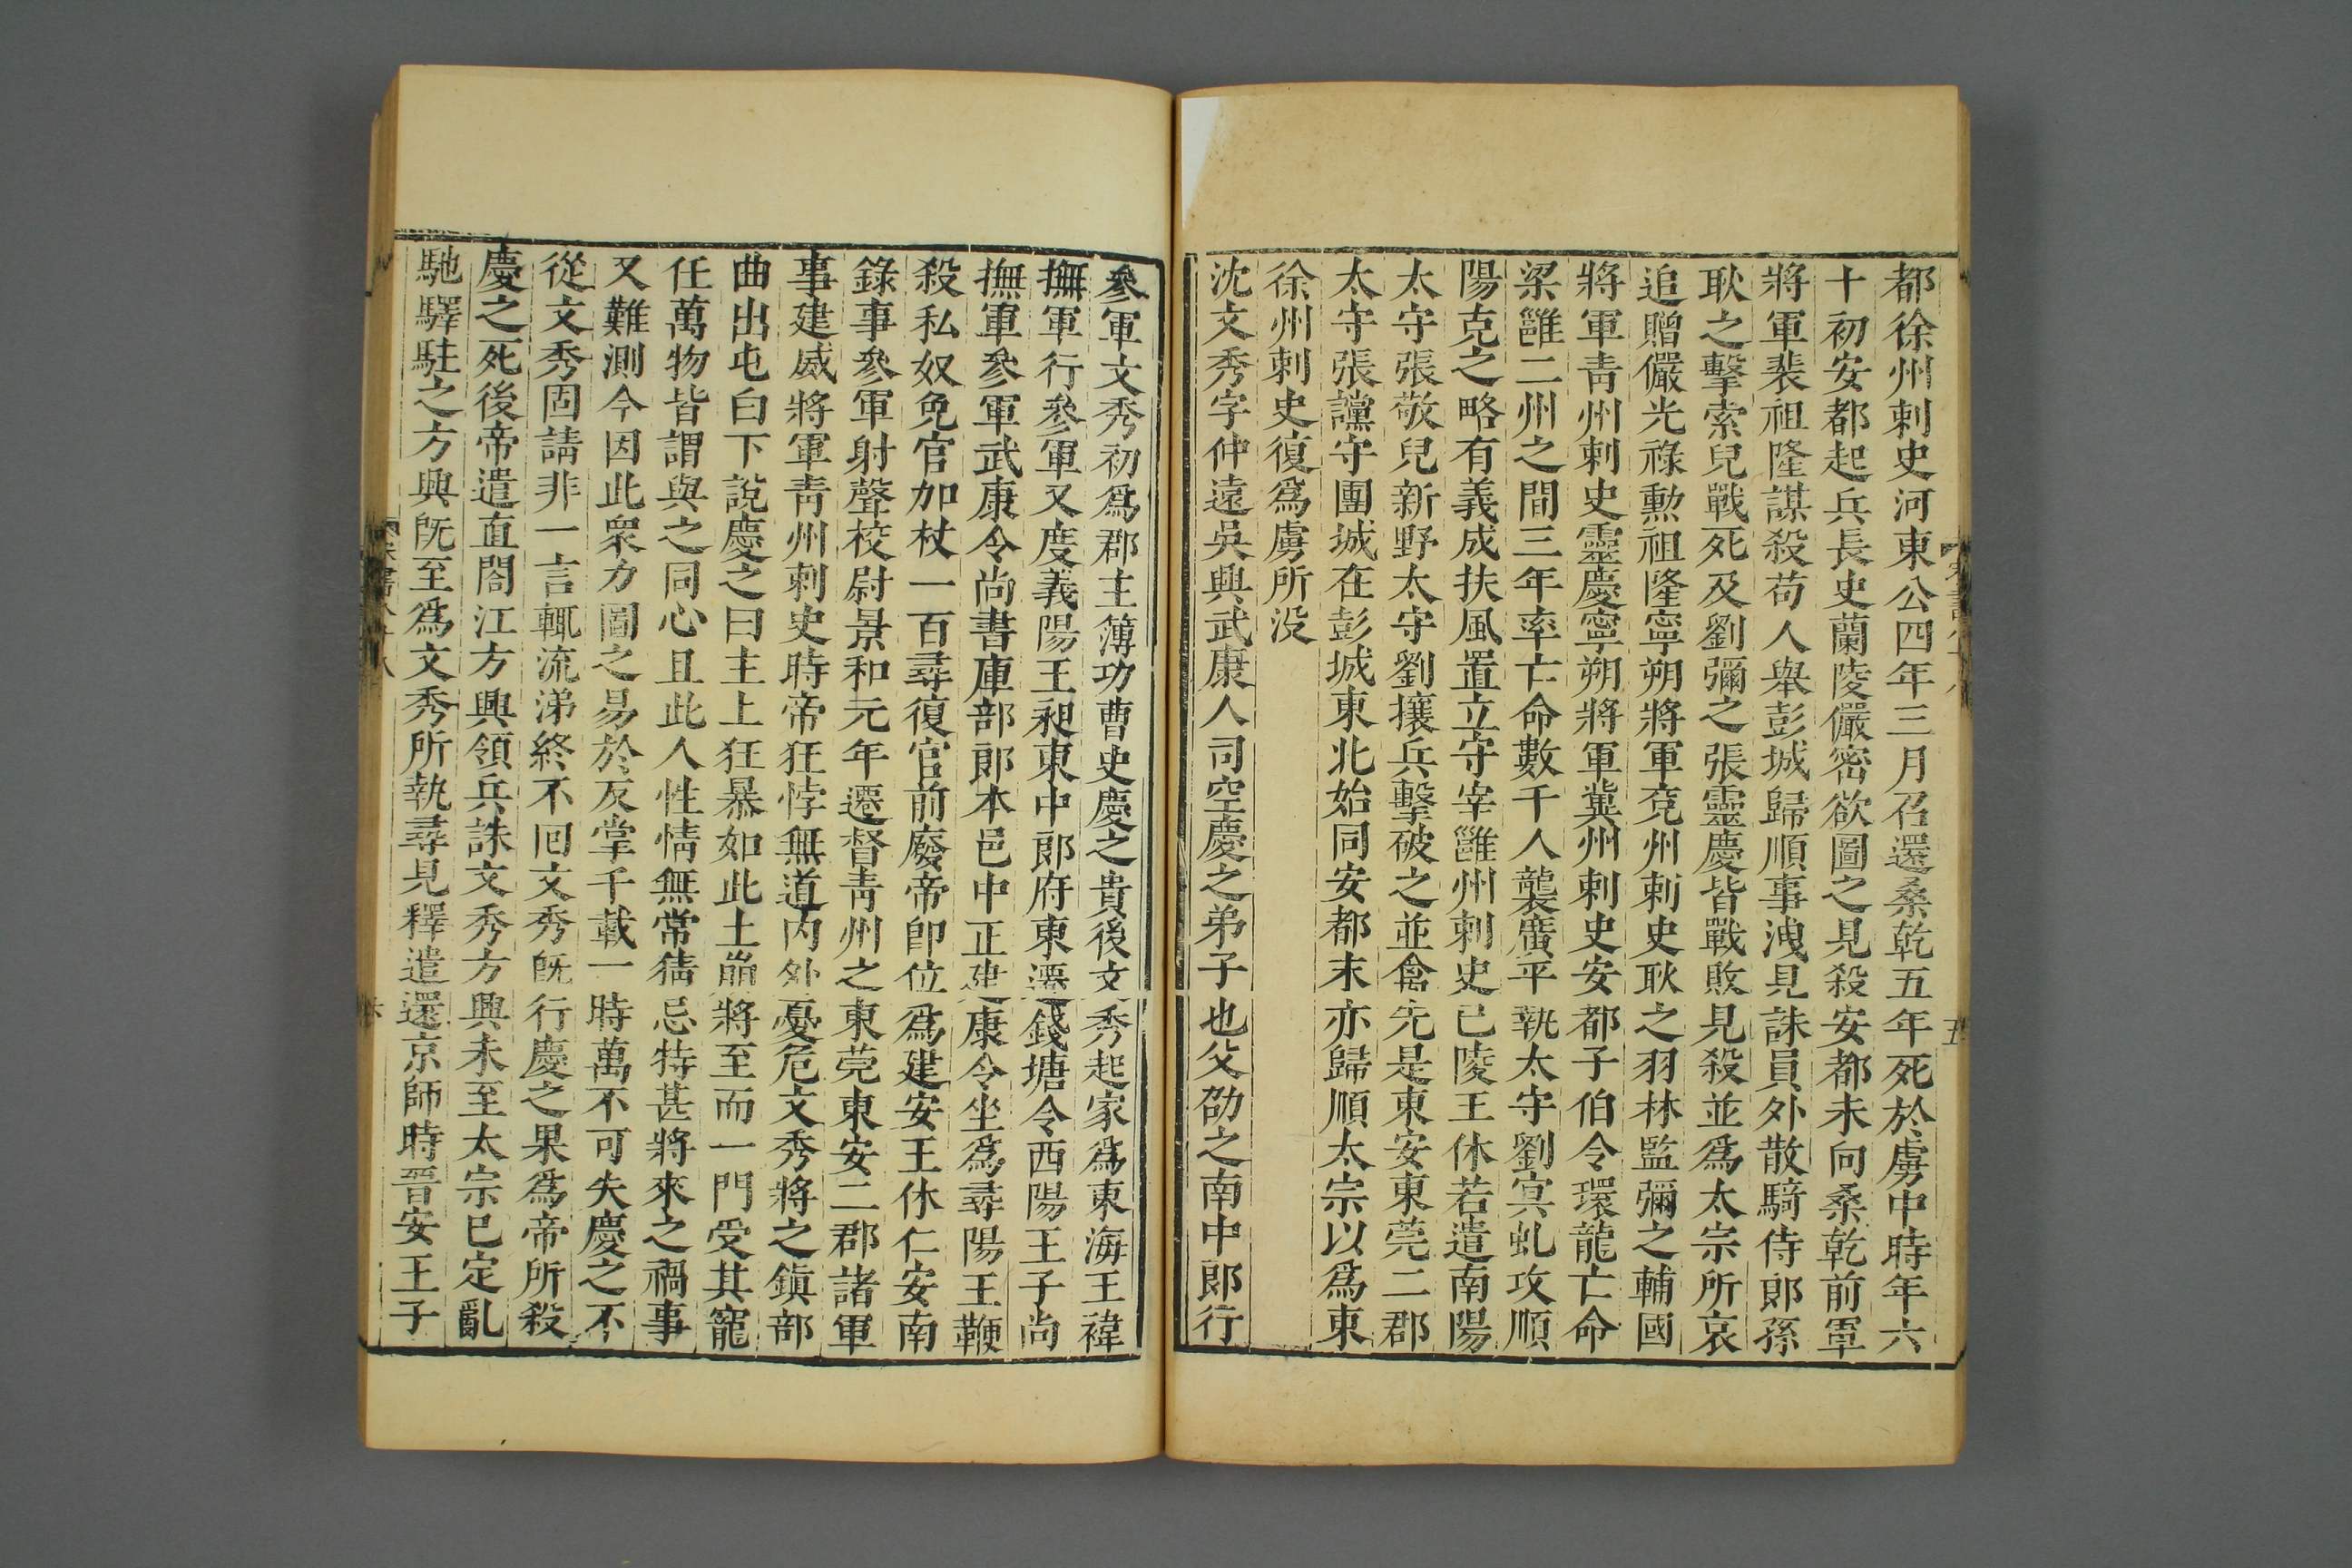 都徐州刺史河東公四年三月召還桑乾五年死於虜中時年六
十初安都起兵長史蘭陵儼密欲圖之見殺安都未向桑乾前軍
將軍裴祖隆謀殺苟人舉彭城歸順事洩見誅員外散騎侍郎孫
耿之擊索兒戰死及劉彌之張靈慶皆戰敗見殺並爲太宗所哀
追贈儼光祿勳祖隆寧朔將軍兖州刺史耿之羽林監彌之輔國
將軍靑州刺史靈慶寧朔將軍冀州刺史安都子伯令環龍亡命
梁雝二州之間三年率亡命數千人襲廣平執太守劉冥虬攻順
陽克之略有義成扶風置立守宰雝州刺史巴陵王休若遣南陽
太守張敬兒新野太守劉攘兵擊破之並禽先是東安東莞二郡
太守張讜守團城在彭城東北始同安都末亦歸順太宗以爲東
徐州刺史復爲虜所没
沈文秀字仲遠吳興武康人司空慶之弟子也父劭之南中郎行
參軍文秀初爲郡主簿功曹史慶之貴後文秀起家爲東海王禕
撫軍行參軍又度義陽王昶東中郎府東遷錢塘令西陽王子尚
撫軍參軍武康令尚書庫部郎本邑中正建康令坐爲尋陽王鞭
殺私奴免官加杖一百尋復官前廢帝卽位爲建安王休仁安南
錄事參軍射聲校尉景和元年遷督靑州之東莞東安二郡諸軍
事建威將軍靑州刺史時帝狂悖無道内外憂危文秀將之鎭部
曲出屯白下說慶之曰主上狂暴如此土崩將至而一門受其寵
任萬物皆謂與之同心且此人性情無常猜忌特甚將來之禍事
又難測今因此衆力圖之易於反掌千載一時萬不可失慶之不
從文秀固請非一言輒流涕終不回文秀旣行慶之果爲帝所殺
慶之死後帝遣直閤江方興領兵誅文秀方興未至太宗已定亂
馳驛駐之方興旣至爲文秀所執尋見釋遣還京師時晉安王子